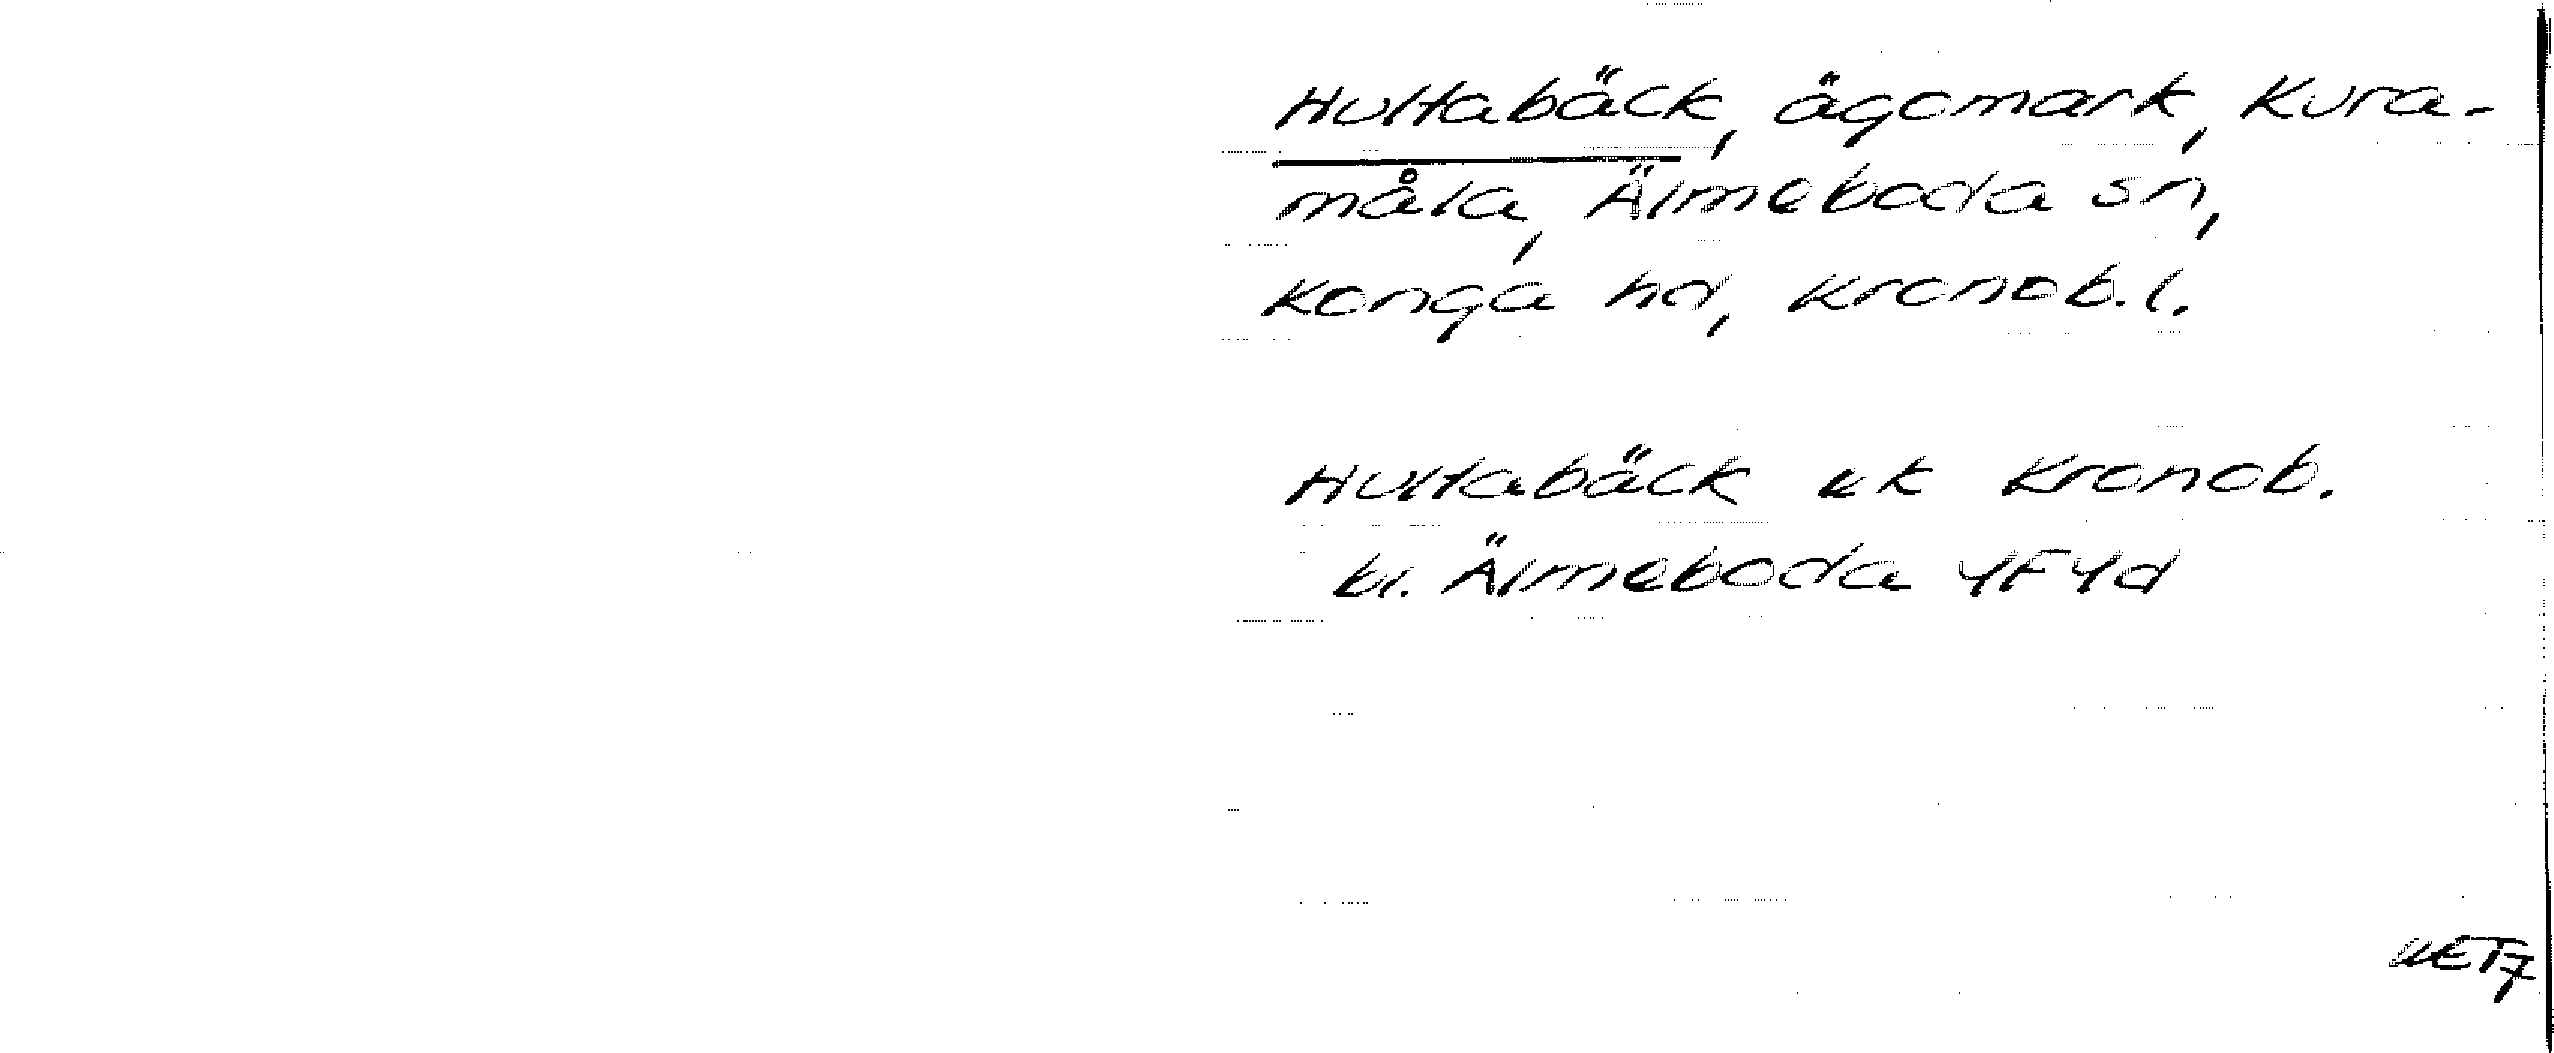 Hultabäck, ägomark, Kura-
måla, Älmeboda sn,
Konga hd, Kronob. l.
Hultabäck ek Kronob.
bl. Älmeboda 4F4d